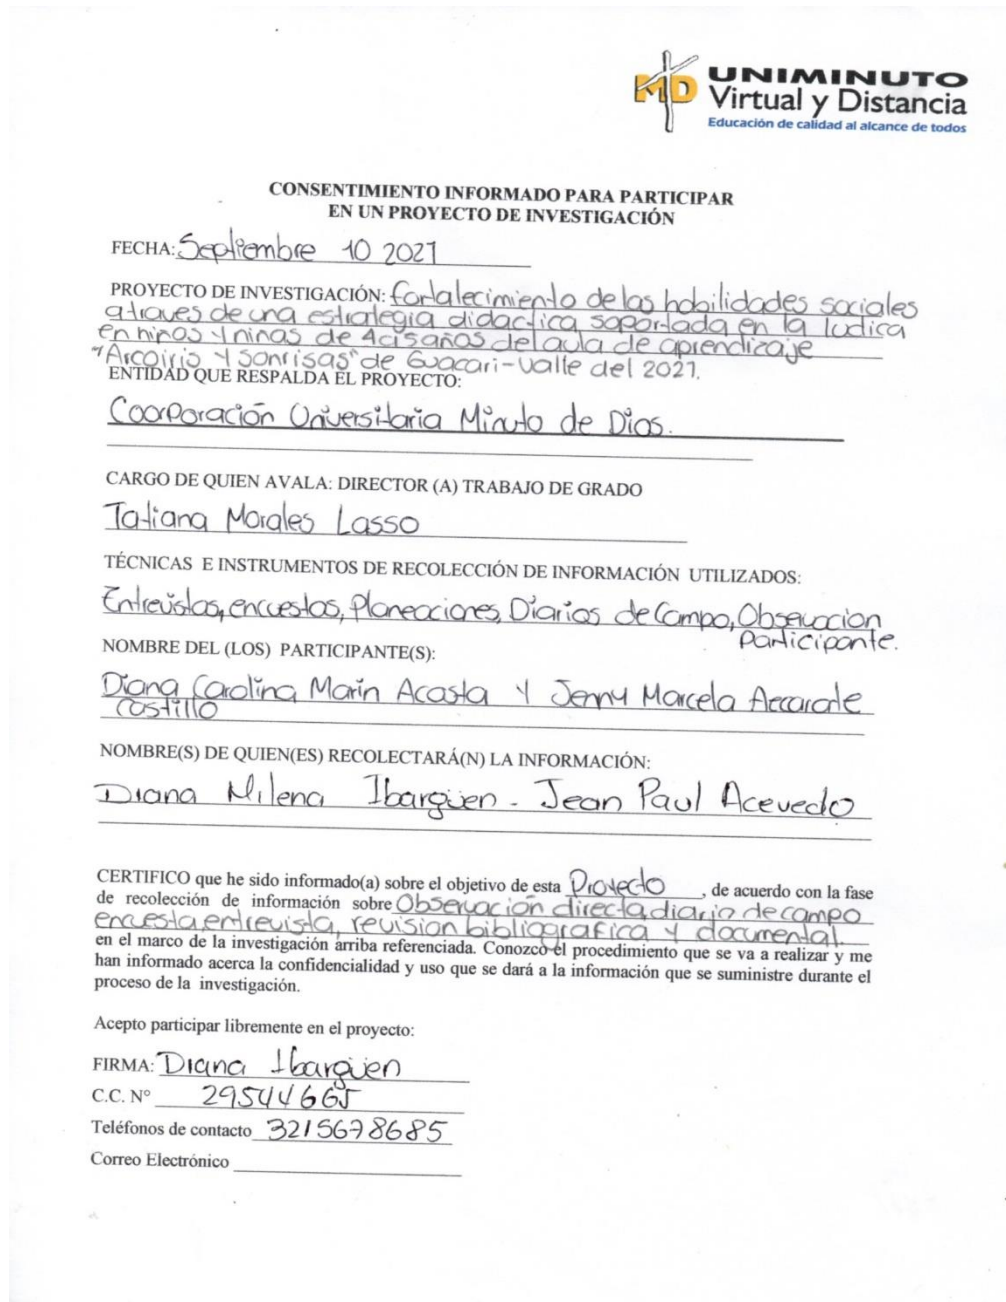 MD UNIMINUTO
Virtual y Distancia
Educación de calidad al alcance de todos
CONSENTIMIENTO INFORMADO PARA PARTICIPAR
EN UN PROYECTO DE INVESTIGACIÓN
FECHA: Septiembre 10 2021
PROYECTO DE INVESTIGACIÓN: fortalecimiento de las habilidades sociales
atraves de una estrategia didactica soportada en la ludica
en niños y niñas de 4 a 5 años del aula de aprendizaje
"Arcoiris y sonrisas" de Guacari-Valle del 2021.
ENTIDAD QUE RESPALDA EL PROYECTO:
Coorporación Universitaria Minuto de Dios.
CARGO DE QUIEN AVALA: DIRECTOR (A) TRABAJO DE GRADO
Tatiana Morales Lasso
TÉCNICAS E INSTRUMENTOS DE RECOLECCIÓN DE INFORMACIÓN UTILIZADOS:
Entrevistas, encuestas, Planeaciones, Diarios de Campo, Observacion
Participante.
NOMBRE DEL (LOS) PARTICIPANTE(S):
Diana Carolina Marin Acosta y Jenny Marcela
Castillo
NOMBRE(S) DE QUIEN(ES) RECOLECTARÁ(N) LA INFORMACIÓN:
Diana Milena Ibargüen - Jean Paul Acevedo
CERTIFICO que he sido informado(a) sobre el objetivo de esta Proyecto, de acuerdo con la fase
de recolección de información sobre Observación directa, diario de campo
encuesta, entrevista, revision bibliografica y documental.
en el marco de la investigación arriba referenciada. Conozco el procedimiento que se va a realizar y me
han informado acerca la confidencialidad y uso que se dará a la información que se suministre durante el
proceso de la investigación.
Acepto participar libremente en el proyecto:
FIRMA: Diana Ibargüen
C.C. N° 29544665
Teléfonos de contacto 3215678685
Correo Electrónico